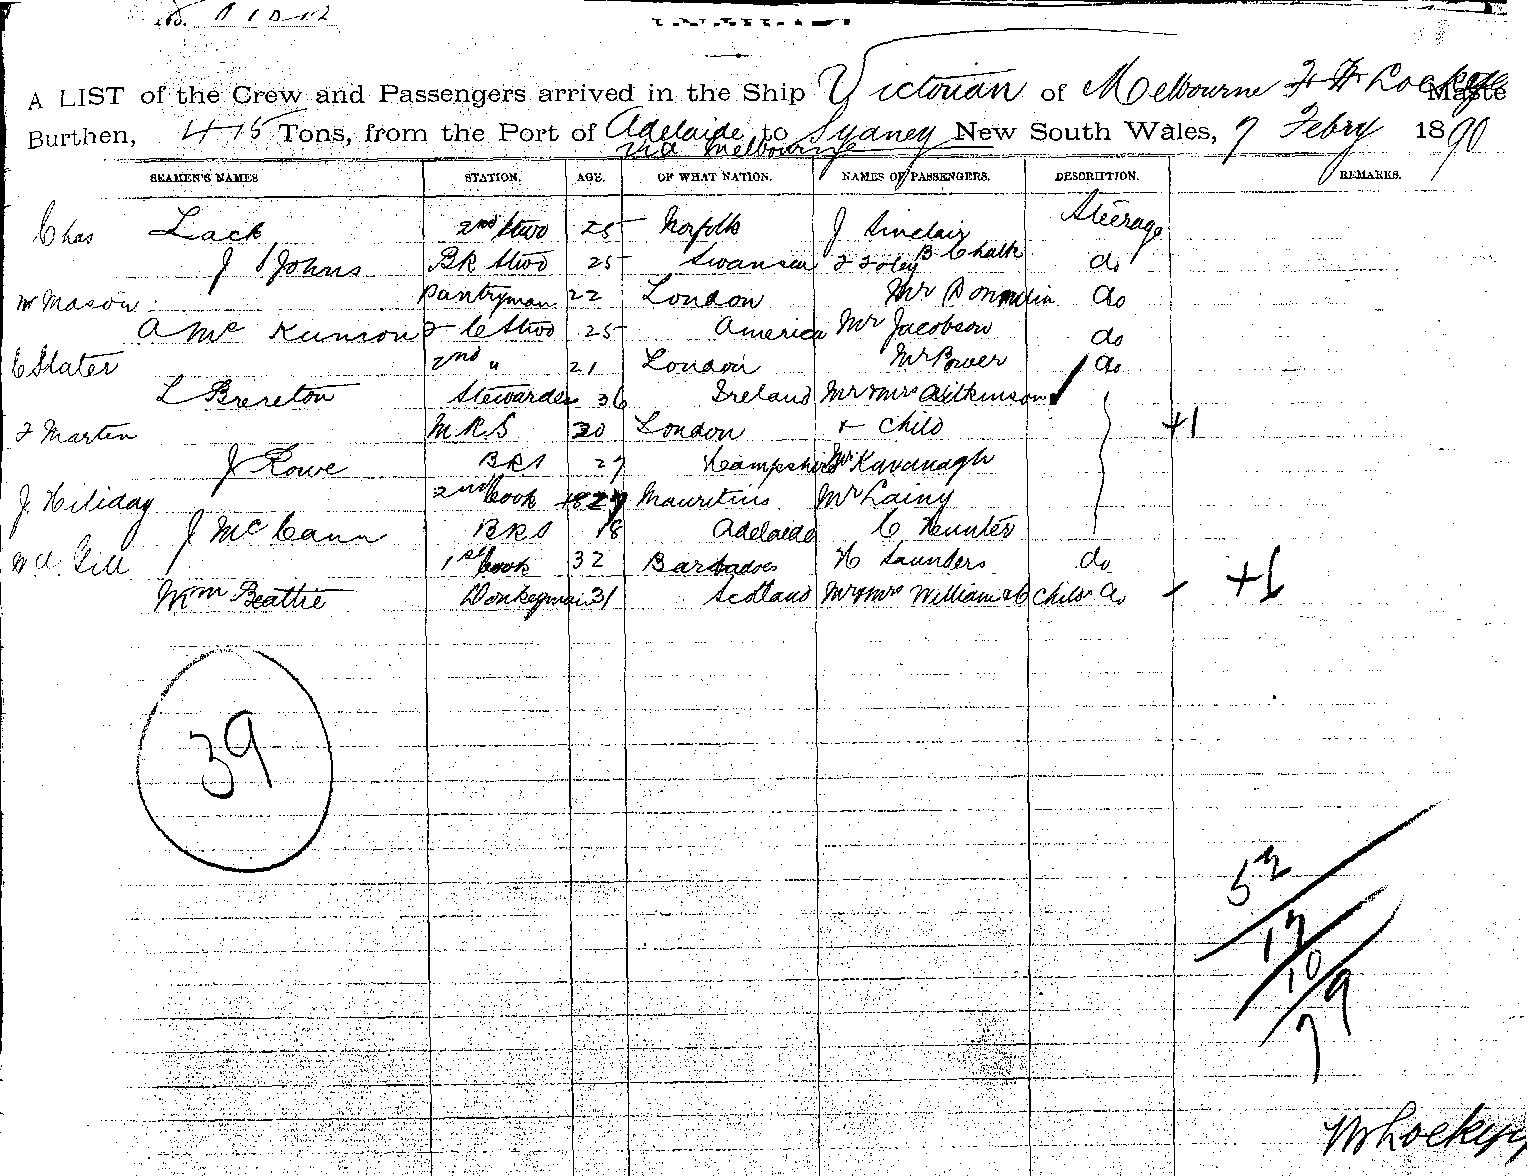 A LIST of the Crew and Passengers arrived in the Ship Victorian of Melbourne Master
Burthen, 415 Tons, from the Port of Adelaide to Sydney New South Wales, 7 Febry 1890
via Melbourne
SEAMEN'S NAMES STATION. AGE. OF WHAT NATION. NAMES OF PASSENGERS. DESCRIPTION. REMARKS.
Chas Lack 2nd Stwd 25 Norfolk J Sinclair Steerage
J Johns BR Stwd 25 Swansea F Foley B Chalk do
W Mason Pantryman 22 London Mr do
A Mc F C Stwd 25 America Mr Jacobson do
C Slater 2nd " 21 London Mr Power do
L Brereton Stewardess 36 Ireland Mr & Mrs Aitkinson
F Martin M R S 20 London + Child +1
J Rowe B R S 27 Hampshire Mr Kavanagh
J Hiliday 2nd Cook 27 Mauritius Mr Lainy
J McCann B R S 18 Adelaide C Hunter
Wd. Gill 1st Cook 32 Barbadoes H Saunders do
Wm Beattie Donkeyman 31 Scotland Mr & Mrs William & C Child do +6
39
52
17
10
9
7
W Lockyer